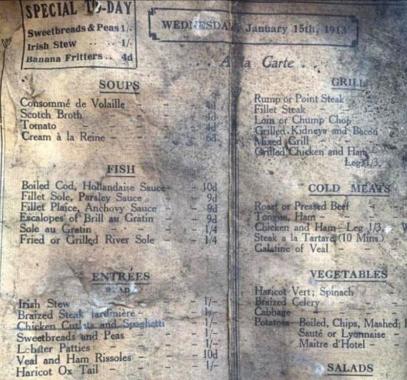 SPECIAL TO-DAY
Sweetbreads & Peas 1/-
Irish Stew .. 1/-
Banana Fritters .. 4d
WEDNESDAY, January 15th, 1913
A la Carte
SOUPS
Consommé de Volaille
Scotch Broth
Tomato
Cream à la Reine 6d
FISH
Boiled Cod, Hollandaise Sauce 10d
Fillet Sole, Parsley Sauce 9d
Fillet Plaice, Anchovy Sauce 9d
Escalopes of Brill au Gratin 9d
Sole au Gratin 1/4
Fried or Grilled River Sole 1/4
ENTREES
READY
Irish Stew 1/-
Braized Steak Jardinière 1/-
Chicken Cutlets and Spaghetti 1/-
Sweetbreads and Peas 1/-
Lobster Patties 1/-
Veal and Ham Rissoles 10d
Haricot Ox Tail 1/-
GRILL
Rump or Point Steak
Fillet Steak
Loin or Chump Chop
Grilled Kidneys and Bacon
Mixed Grill
Grilled Chicken and Ham
Leg 1/3
COLD MEATS
Roast or Pressed Beef
Tongue, Ham
Chicken and Ham Leg 1/3,
Steak a la Tartare (10 Mins)
Galatine of Veal
VEGETABLES
Haricot Vert; Spinach
Braized Celery
Cabbage
Potatoes Boiled, Chips, Mashed;
Sauté or Lyonnaise
Maitre d'Hotel
SALADS